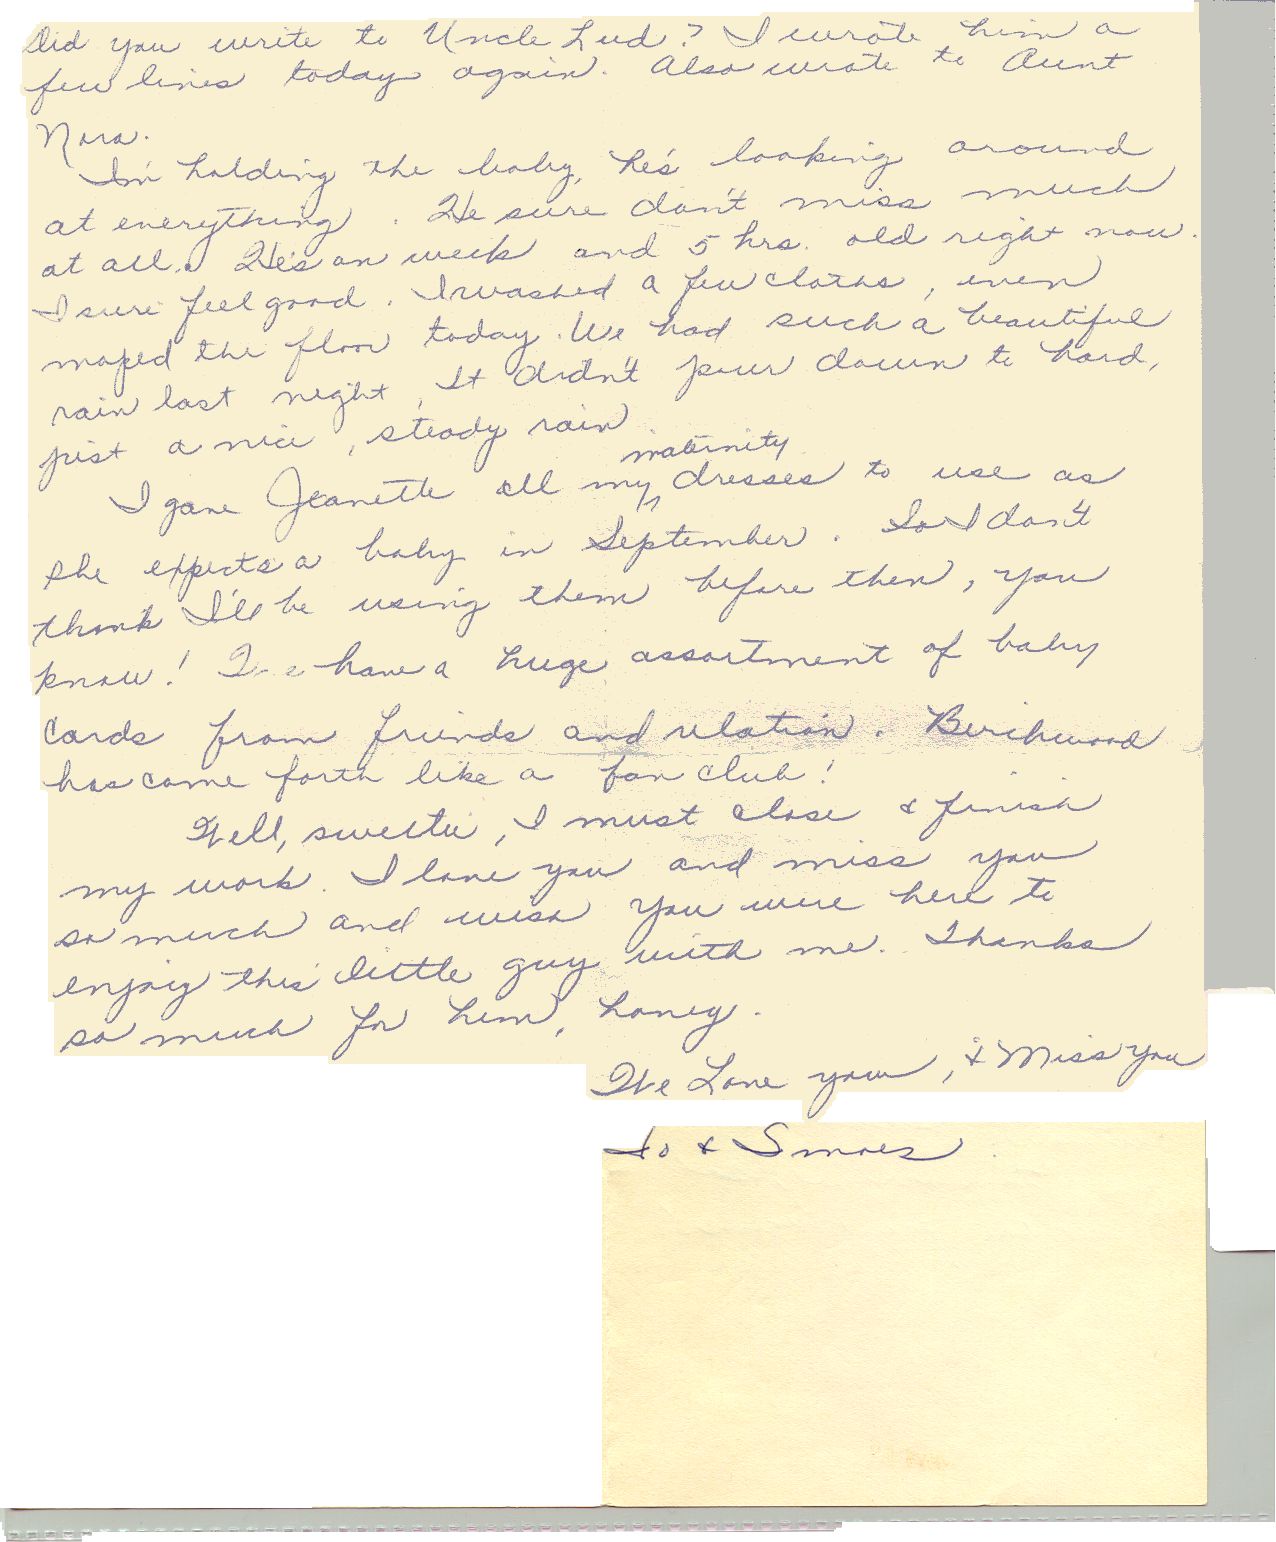 Did you write to Uncle Lud? I wrote him a
few lines today again. Also wrote to Aunt
Nora.
I'm holding the baby, he's looking around
at everything. He sure don't miss much
at all. He's on week and 5 hrs. old right now.
I sure feel good. I washed a few cloths, even
moped the floor today. We had such a beautiful
rain last night, It didn't pour down to hard,
just a nice, steady rain
maternity
I gave Jeanette all my dresses to use as
she expects a baby in September. So I don't
think I'll be using them before then, you
know! We have a huge assortment of baby
cards from friends and relation. Birchwood
has come forth like a fan club!
Well, sweetie, I must close & finish
my work. I love you and miss you
so much and wish you were here to
enjoy this little guy with me. Thanks
so much for him, honey.
We Love you, & Miss you
Jo &